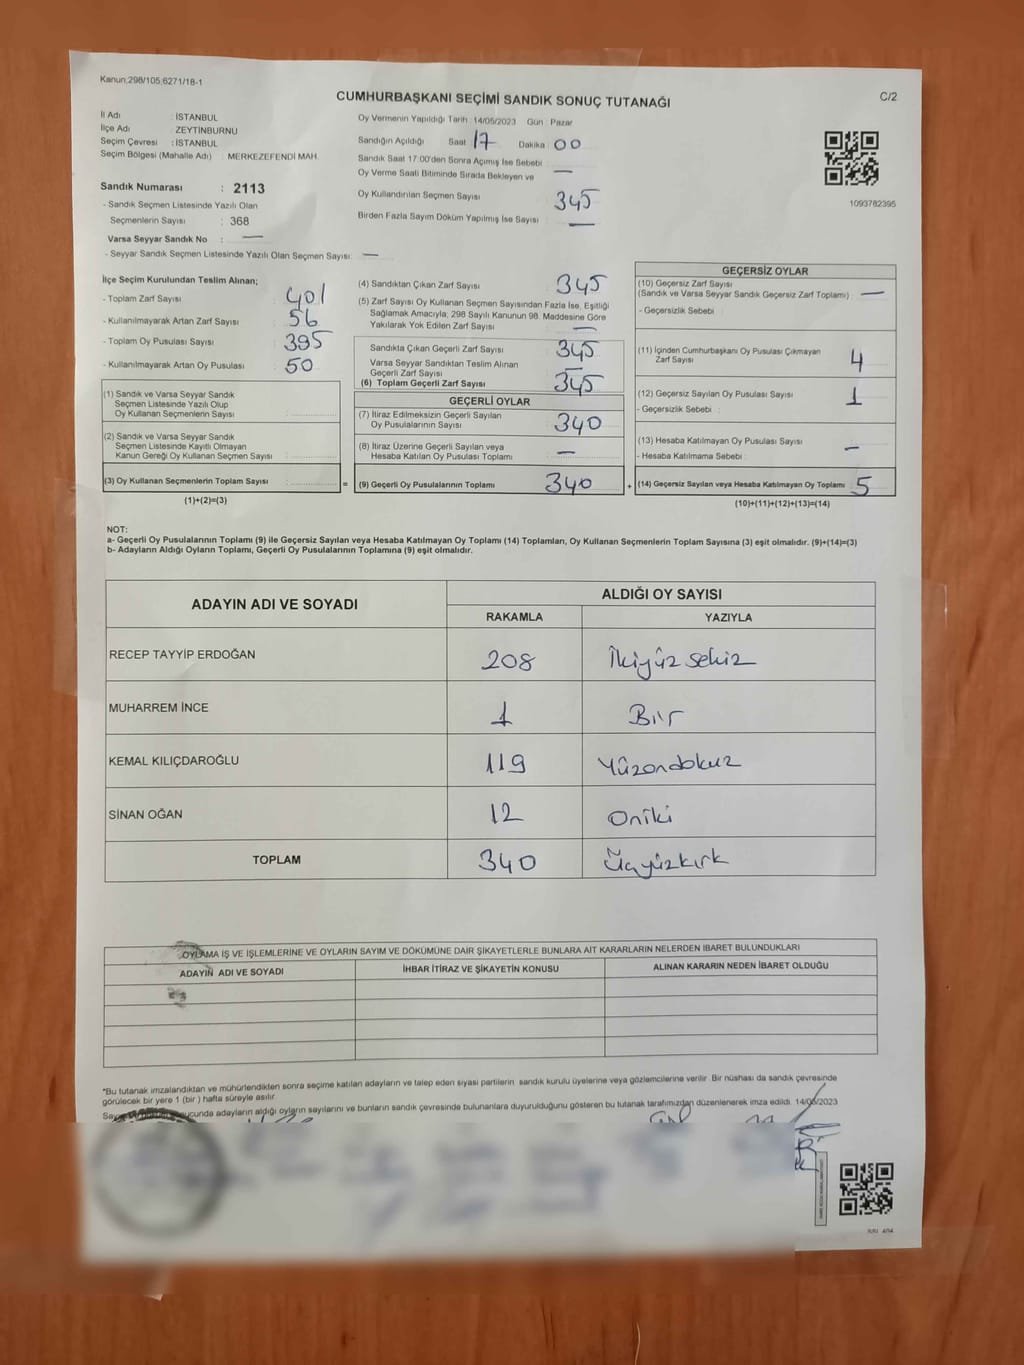 Kanun,298/105,6271/18-1
CUMHURBAŞKANI SEÇİMİ SANDIK SONUÇ TUTANAĞI
C/2
İl Adı : İSTANBUL
İlçe Adı : ZEYTİNBURNU
Seçim Çevresi : İSTANBUL
Seçim Bölgesi (Mahalle Adı) : MERKEZEFENDİ MAH.
Sandık Numarası : 2113
- Sandık Seçmen Listesinde Yazılı Olan
Seçmenlerin Sayısı : 368
Varsa Seyyar Sandık No : —
- Seyyar Sandık Seçmen Listesinde Yazılı Olan Seçmen Sayısı: —
Oy Vermenin Yapıldığı Tarih : 14/05/2023 Gün : Pazar
Sandığın Açıldığı Saat 17 Dakika 00
Sandık Saat 17:00'den Sonra Açmış İse Sebebi
Oy Verme Saati Bitiminde Sırada Bekleyen ve —
Oy Kullandırılan Seçmen Sayısı 345
Birden Fazla Sayım Döküm Yapılmış İse Sayısı —
1093782395
İlçe Seçim Kurulundan Teslim Alınan;
- Toplam Zarf Sayısı 401
- Kullanılmayarak Artan Zarf Sayısı 56
- Toplam Oy Pusulası Sayısı 395
- Kullanılmayarak Artan Oy Pusulası 50
(1) Sandık ve Varsa Seyyar Sandık
Seçmen Listesinde Yazılı Olup
Oy Kullanan Seçmenlerin Sayısı
(2) Sandık ve Varsa Seyyar Sandık
Seçmen Listesinde Kayıtlı Olmayan
Kanun Gereği Oy Kullanan Seçmen Sayısı
(3) Oy Kullanan Seçmenlerin Toplam Sayısı =
(1)+(2)=(3)
(4) Sandıktan Çıkan Zarf Sayısı 345
(5) Zarf Sayısı Oy Kullanan Seçmen Sayısından Fazla İse, Eşitliği
Sağlamak Amacıyla, 298 Sayılı Kanunun 98. Maddesine Göre
Yakılarak Yok Edilen Zarf Sayısı —
Sandıkta Çıkan Geçerli Zarf Sayısı 345
Varsa Seyyar Sandıktan Teslim Alınan
Geçerli Zarf Sayısı —
(6) Toplam Geçerli Zarf Sayısı 345
GEÇERLİ OYLAR
(7) İtiraz Edilmeksizin Geçerli Sayılan
Oy Pusulasının Sayısı 340
(8) İtiraz Üzerine Geçerli Sayılan veya
Hesaba Katılan Oy Pusulası Toplamı —
(9) Geçerli Oy Pusulalarının Toplamı 340 +
GEÇERSİZ OYLAR
(10) Geçersiz Zarf Sayısı
(Sandık ve Varsa Seyyar Sandık Geçersiz Zarf Toplamı) —
- Geçersizlik Sebebi :
(11) İçinden Cumhurbaşkanı Oy Pusulası Çıkmayan
Zarf Sayısı 4
(12) Geçersiz Sayılan Oy Pusulası Sayısı 1
- Geçersizlik Sebebi :
(13) Hesaba Katılmayan Oy Pusulası Sayısı —
- Hesaba Katılmama Sebebi :
(14) Geçersiz Sayılan veya Hesaba Katılmayan Oy Toplamı 5
(10)+(11)+(12)+(13)=(14)
NOT:
a- Geçerli Oy Pusulalarının Toplamı (9) ile Geçersiz Sayılan veya Hesaba Katılmayan Oy Toplamı (14) Toplamları, Oy Kullanan Seçmenlerin Toplam Sayısına (3) eşit olmalıdır. (9)+(14)=(3)
b- Adayların Aldığı Oyların Toplamı, Geçerli Oy Pusulalarının Toplamına (9) eşit olmalıdır.
ADAYIN ADI VE SOYADI
ALDIĞI OY SAYISI
RAKAMLA YAZIYLA
RECEP TAYYİP ERDOĞAN 208 İkiyüz sekiz
MUHARREM İNCE 1 Bir
KEMAL KILIÇDAROĞLU 119 Yüzondokuz
SİNAN OĞAN 12 Oniki
TOPLAM 340 Üçyüzkırk
OYLAMA İŞ VE İŞLEMLERİNE VE OYLARIN SAYIM VE DÖKÜMÜNE DAİR ŞİKAYETLERLE BUNLARA AİT KARARLARIN NELERDEN İBARET BULUNDUKLARI
ADAYIN ADI VE SOYADI İHBAR İTİRAZ VE ŞİKAYETİN KONUSU ALINAN KARARIN NEDEN İBARET OLDUĞU
*Bu tutanak imzalandıktan ve mühürlendikten sonra seçime katılan adayların ve talep eden siyasi partilerin sandık kurulu üyelerine veya gözlemcilerine verilir. Bir nüshası da sandık çevresinde
görülecek bir yere 1 (bir ) hafta süreyle asılır.
ucunda adayların aldığı oyların sayılarını ve bunların sandık çevresinde bulunanlara duyurulduğunu gösteren bu tutanak tarafımızdan düzenlenerek imza edildi. 14/05/2023